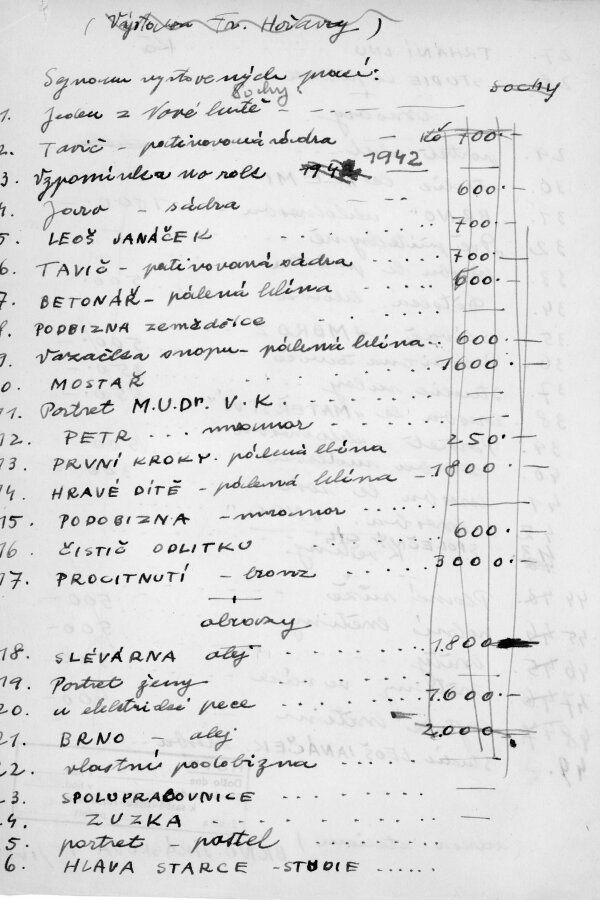 ( Výstava Fr. Hořavy )
Seznam vystavených prací:
Sochy. sochy
1. Jeden z Nové hutě - - - - - - -
2. Tavič - patinovaná sádra Kč 700.-
3. Vzpomínka na role 1942 600.-
4. Jaro - sádra
5. LEOŠ JANÁČEK . . . . . . 700.-
6. TAVIČ - patinovaná sádra 700.-
7. BETONÁŘ - pálená hlína . . . 600.-
8. PODBIZNA zemědělce
9. Vazačka snopu - pálená hlína . . 600.-
0. MOSTAŘ . . . . . . . 1600.-
11. Portret M.U.Dr. V. K. . . . . . .
12. PETR . . . mramor 250.-
13. PRVNÍ KROKY - pálená hlína 1800.-
14. HRAVÉ DÍTĚ - pálená hlína -
15. PODOBIZNA - mramor . . . . . . 600.-
16. ČISTIČ ODLITKU 3000.-
17. PROCITNUTÍ - bronz . . . . . .
obrazy
18. SLÉVÁRNA olej . . . . . . 1.800
19. Portret ženy
20. u elektrické pece . . . . . . 1.600.-
21. BRNO - olej 2.000
22. vlastní podobizna . . . . . .
23. SPOLUPRACOVNICE . . . . . . .
4. ZUZKA . . . . . . .
5. portret - pastel . . . . . .
6. HLAVA STARCE - STUDIE . . . . . .